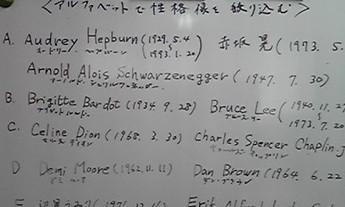 <アルファベットで性格像を絞り込む>
A. Audrey Hepburn (1929. 5.4 ~ 1993. 1.20) 赤坂 晃 (1973. 5.
オードリー ヘプバーン
Arnold Alois Schwarzenegger (1947. 7. 30)
B. Brigitte Bardot (1934. 9. 28) Bruce Lee (1940. 11. 27 ~ 1973. 7. 20
ブルース リー
C. Celine Dion (1968. 3. 30) Charles Spencer Chaplin. J
セリーヌ ディオン
D Demi Moore (1962. 11. 11) Dan Brown (1964. 6. 22
デミ ムーア ダン ブラウン